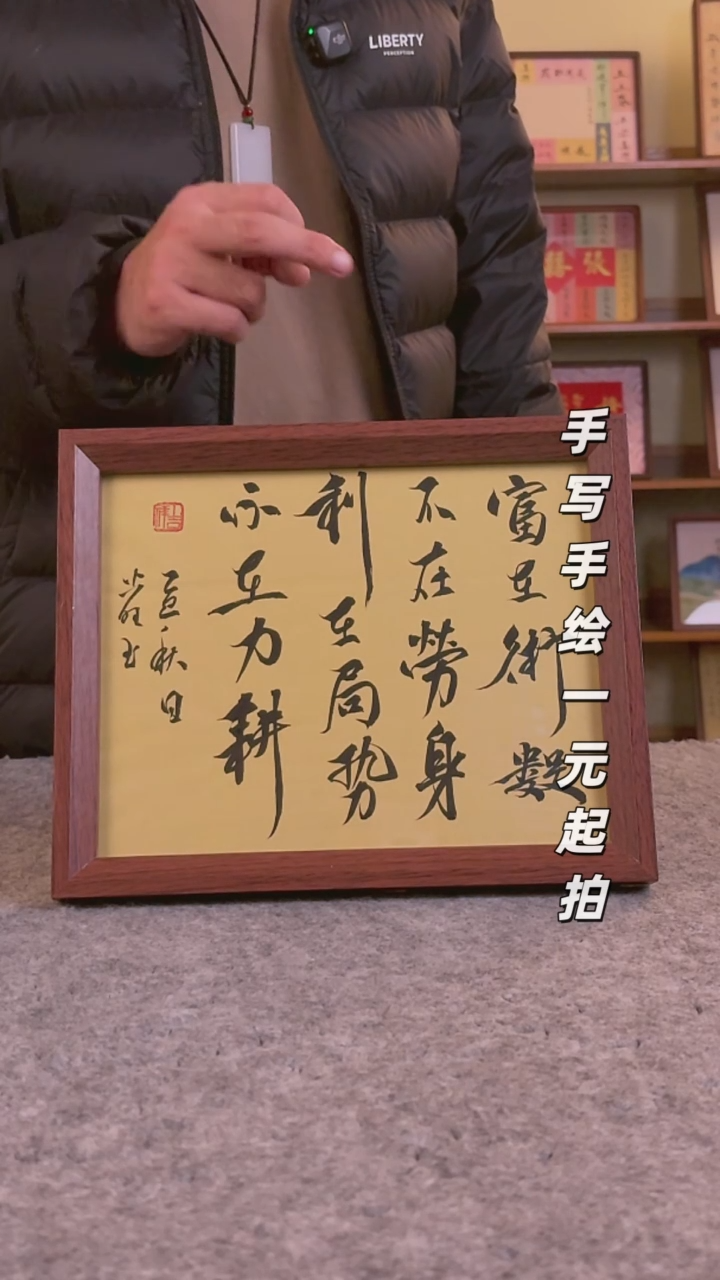 LIBERTY
PERCEPTION
富在術數
不在勞身
利在局势
不在力耕
秋日
手写手绘一元起拍